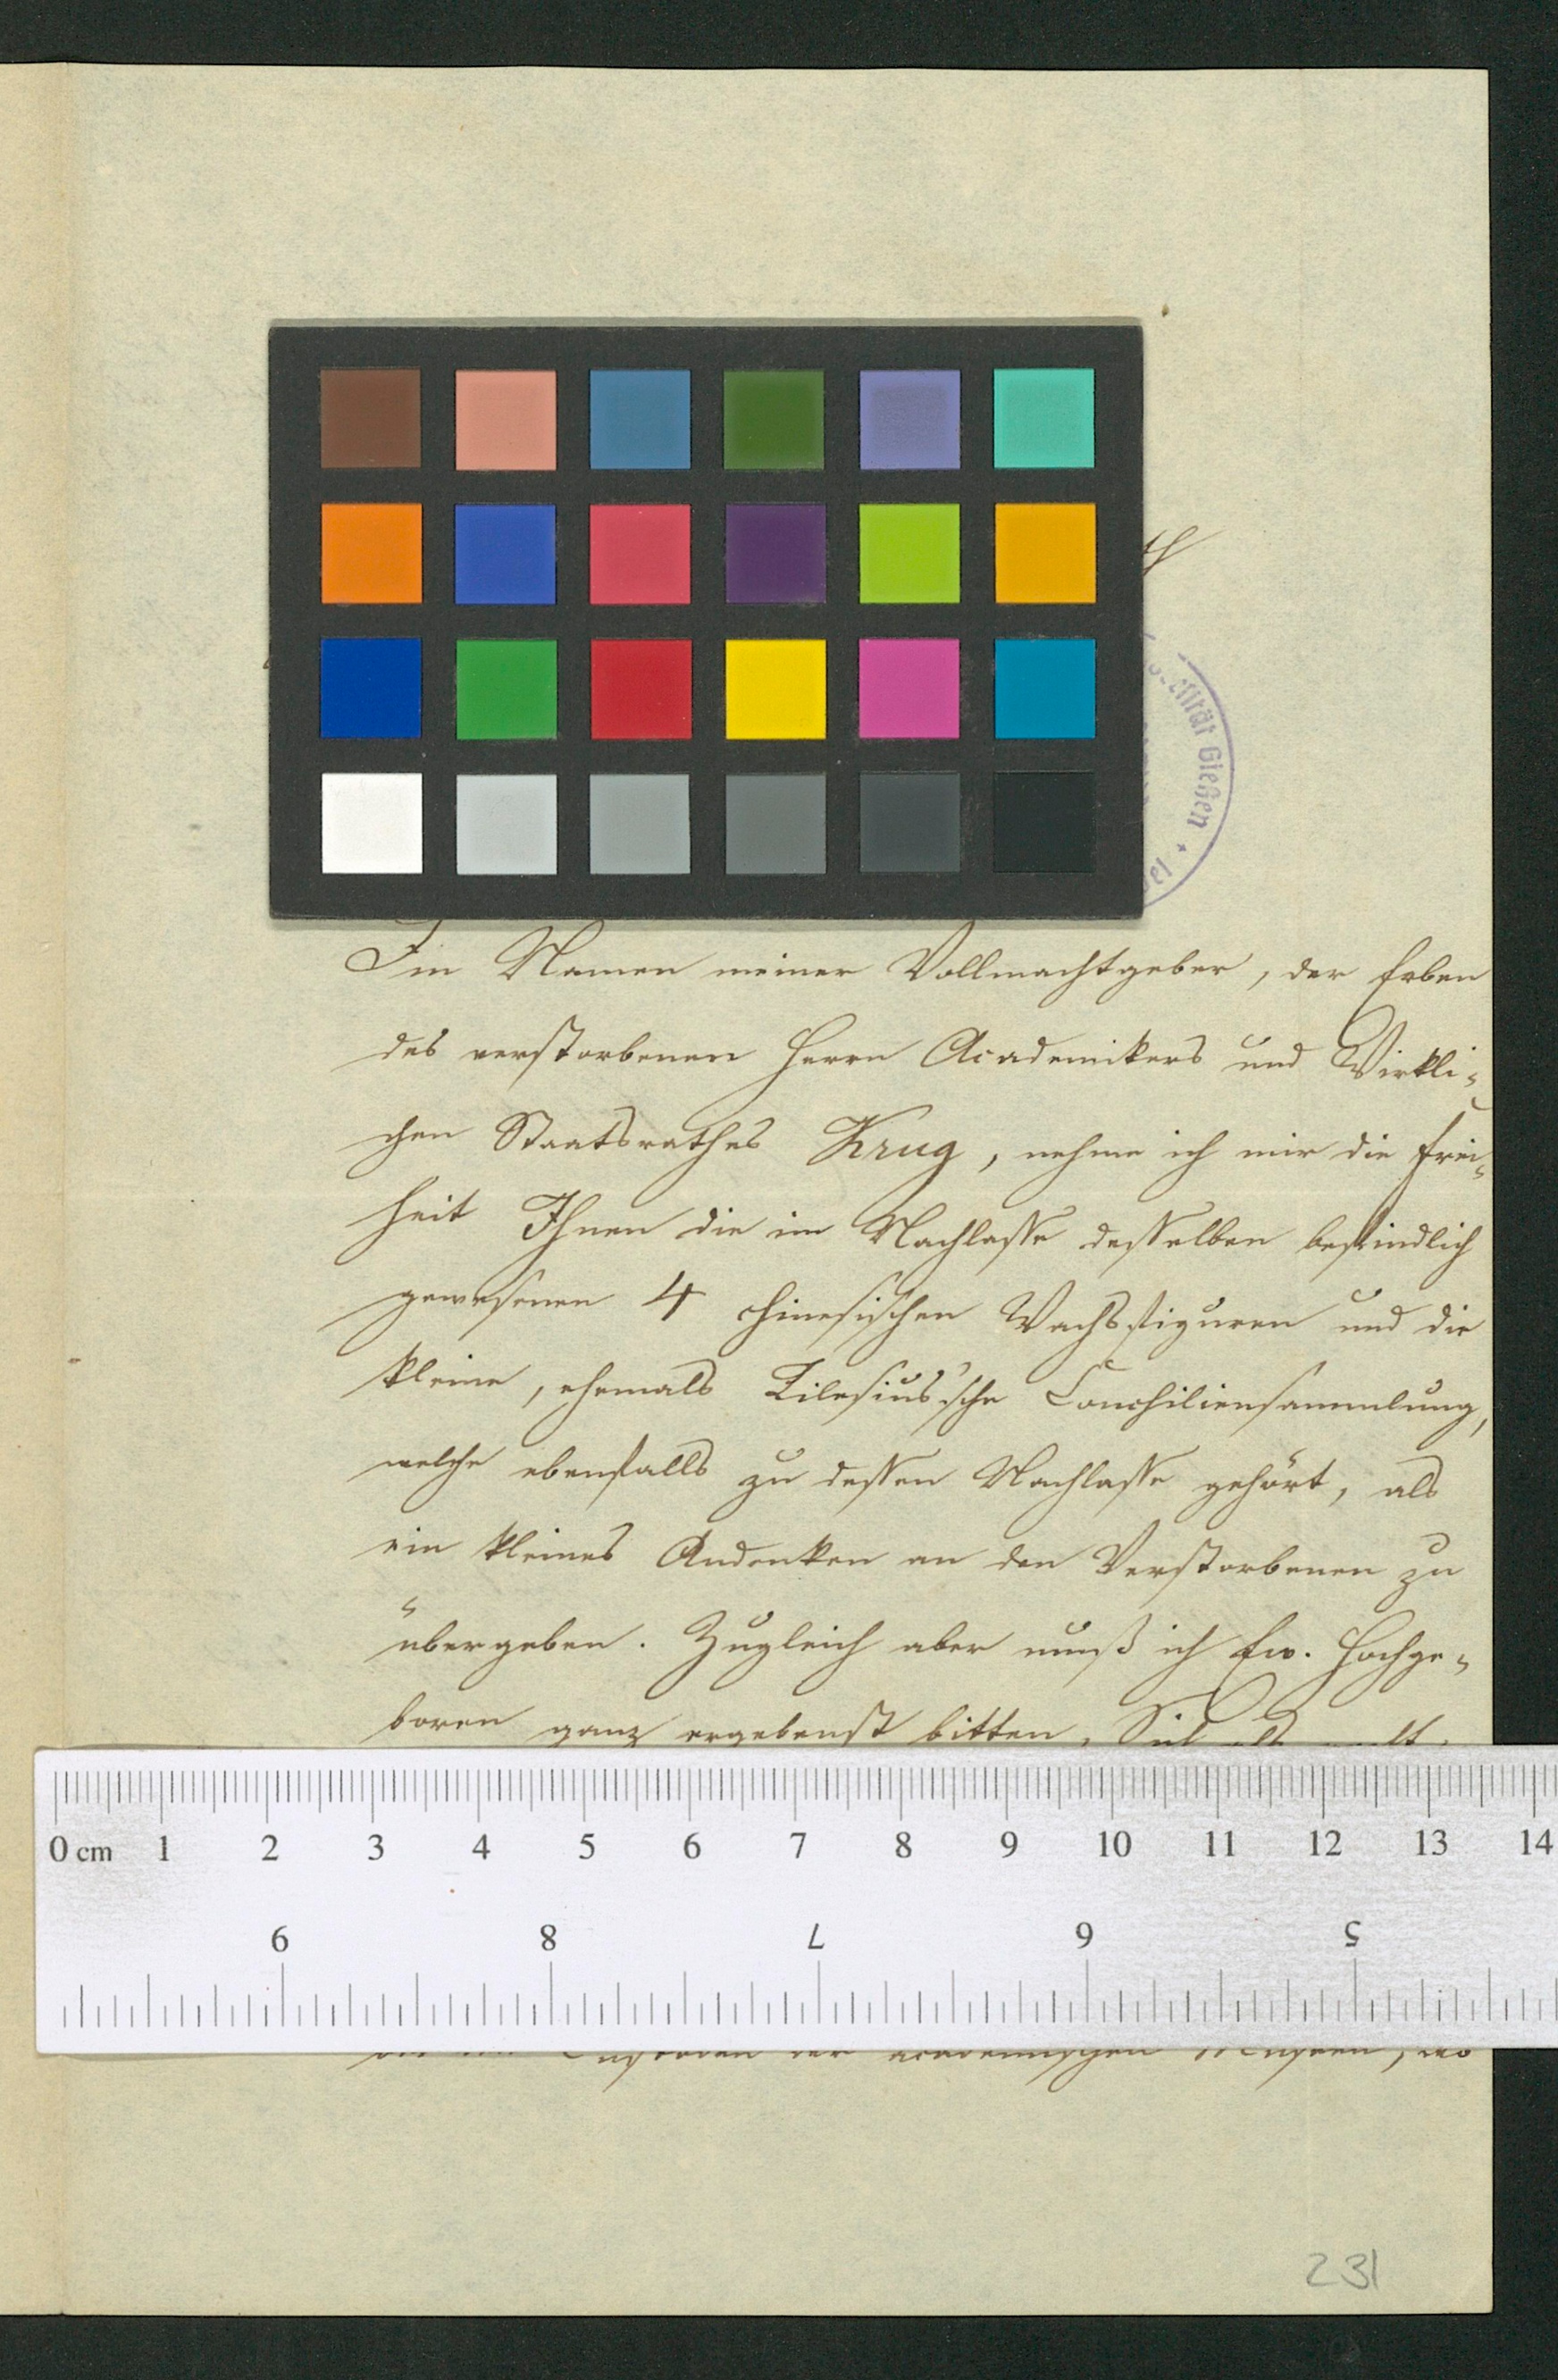 Im Namen meiner Vollmachtgeber, der Erben
des verstorbenen Herrn Academikers und Wirkli-
chen Staatsrathes Krug, nehme ich mir die Frei-
heit Ihnen die im Nachlasse desselben befindlich
gewesenen 4 chinesischen Wachsfiguren und die
kleine, ehemals Tilesius'sche Conchiliensammlung,
welche ebenfalls zu dessen Nachlasse gehört, als
ein kleines Andenken an den Verstorbenen zu
übergeben. Zugleich aber muß ich Ew. Hochge-
boren ganz ergebenst bitten,
0 cm 1 2 3 4 5 6 7 8 9 10 11 12 13 14
9 8 7 6 5
der academischen Museen, das
231
Gießen